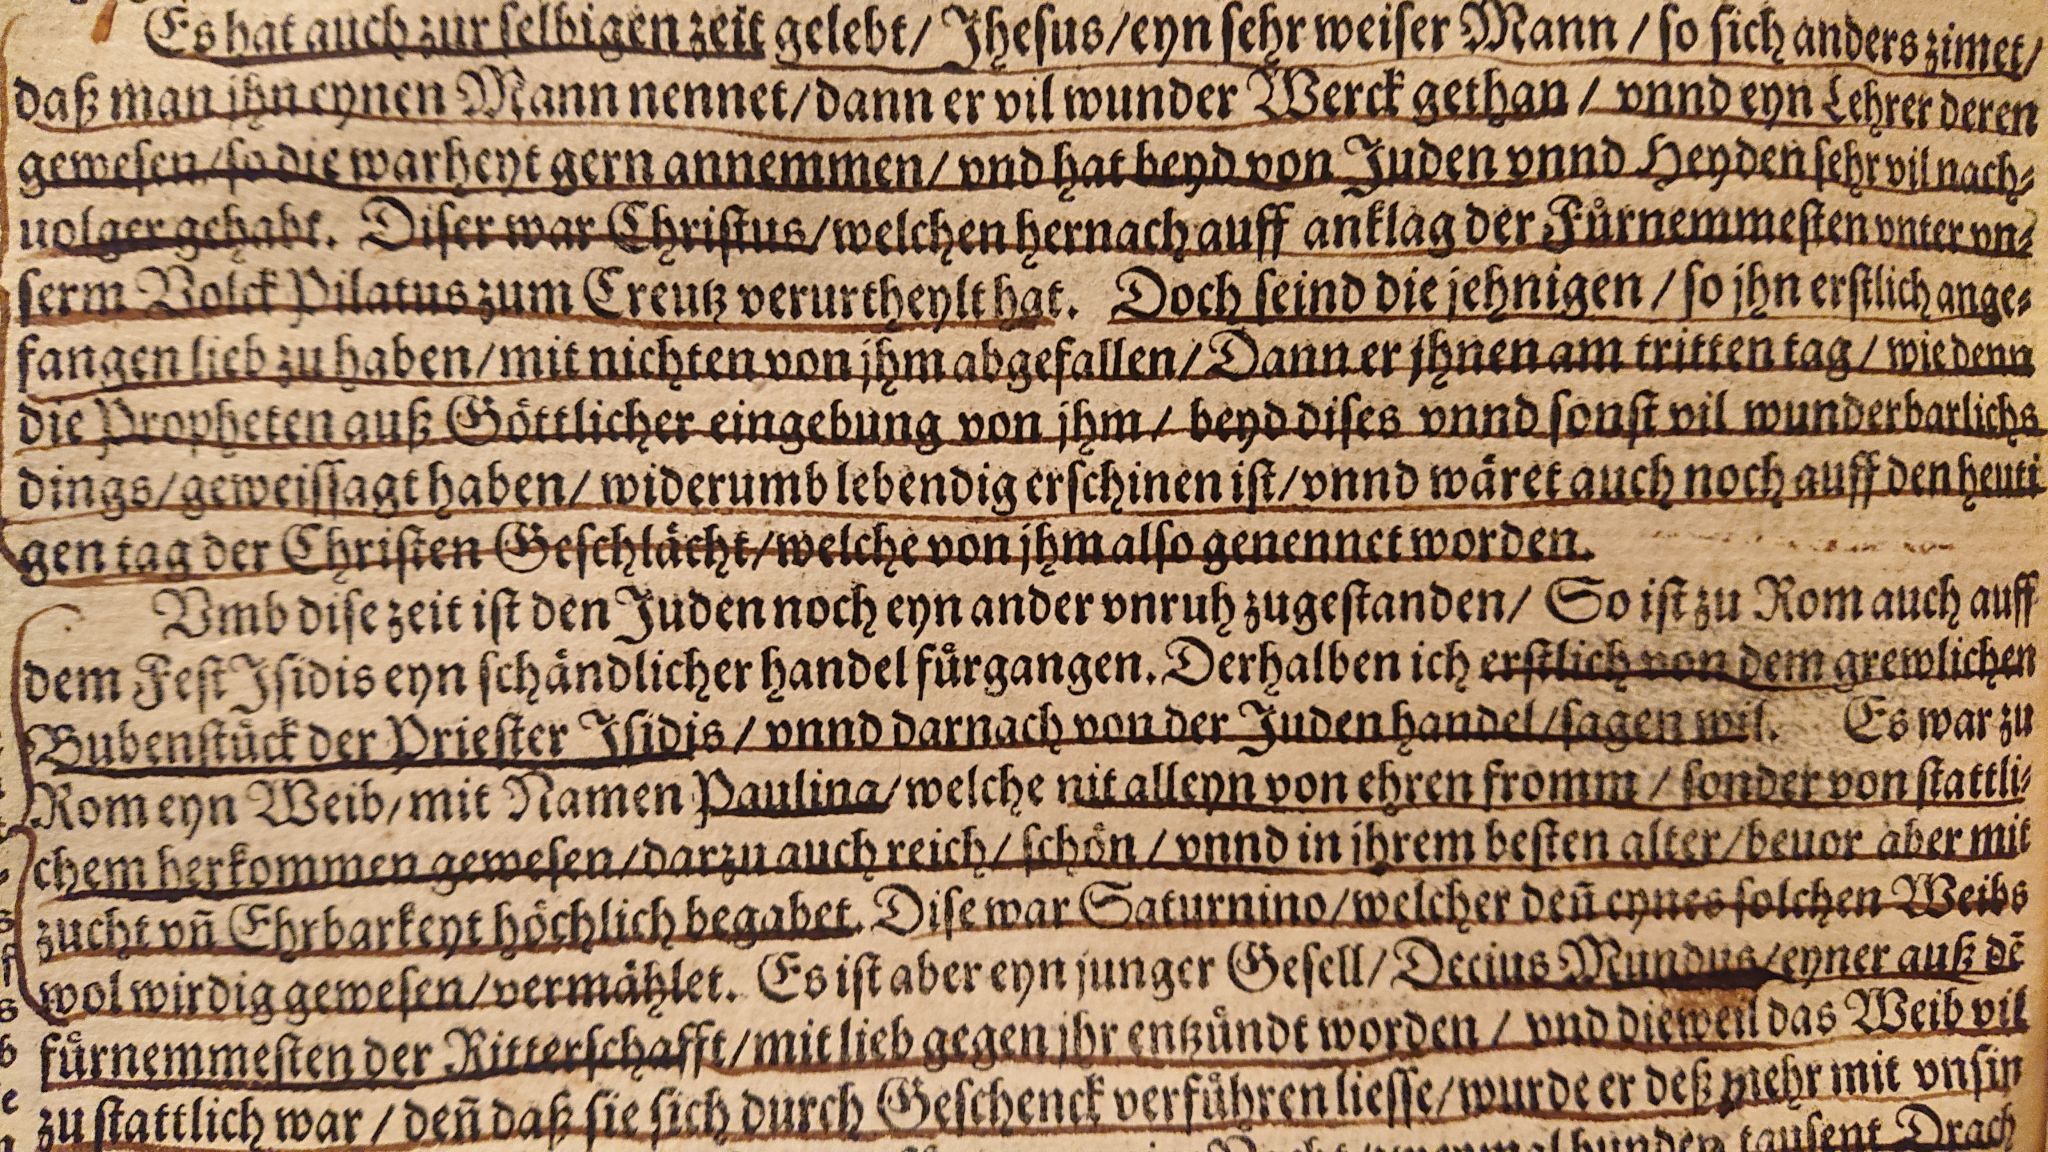 Es hat auch zur selbigen zeit gelebt/ Jhesus/ eyn sehr weiser Mann / so sich anders zimet/
daß man jhn eynen Mann nennet/ dann er vil wunder Werck gethan / vnnd eyn Lehrer deren
gewesen/ so die warheyt gern annemmen/ vnd hat beyd von Juden vnnd Heyden sehr vil nach⸗
uolger gehabt. Diser war Christus/ welchen hernach auff anklag der Fuͤrnemmesten vnter vn⸗
serm Volck Pilatus zum Creutz verurtheylt hat. Doch seind die jehnigen / so jhn erstlich ange⸗
fangen lieb zu haben/ mit nichten von jhm abgefallen/ Dann er jhnen am tritten tag / wie denn
die Propheten auß Goͤttlicher eingebung von jhm / beyd dises vnnd sonst vil wunderbarlichs
dings/ geweissagt haben/ widerumb lebendig erschinen ist/ vnnd waͤret auch noch auff den heuti
gen tag der Christen Geschlaͤcht/ welche von jhm also genennet worden.
Vmb dise zeit ist den Juden noch eyn ander vnruh zugestanden/ So ist zu Rom auch auff
dem Fest Isidis eyn schaͤndlicher handel fuͤrgangen. Derhalben ich erstlich von dem grewlichen
Bubenstuͤck der Priester Isidis / vnnd darnach von der Juden handel / sagen wil. Es war zu
Rom eyn Weib/ mit Namen Paulina/ welche nit alleyn von ehren fromm / sonder von stattli⸗
chem herkommen gewesen/ darzu auch reich/ schoͤn / vnnd in jhrem besten alter / beuor aber mit
zucht vñ Ehrbarkeyt hoͤchlich begabet. Dise war Saturnino/ welcher deñ eynes solchen Weibs
wol wirdig gewesen/ vermaͤhlet. Es ist aber eyn junger Gesell/ Decius Mundus/ eyner auß dē
fuͤrnemmesten der Ritterschafft/ mit lieb gegen jhr entzuͤndt worden / vnd dieweil das Weib vil
zu stattlich war / deñ daß sie sich durch Geschenck verfuͤhren liesse/ wurde er deß mehr mit vnsin
hunder tausent Drach